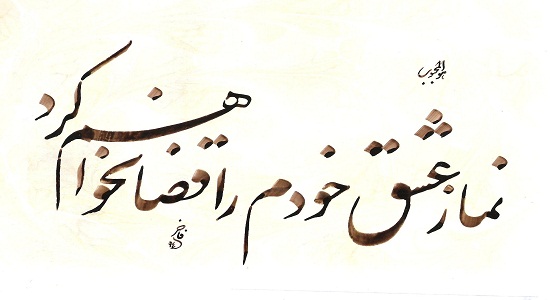 هوالمحبوب
نماز عشق خودم را قضا نخواهم کرد